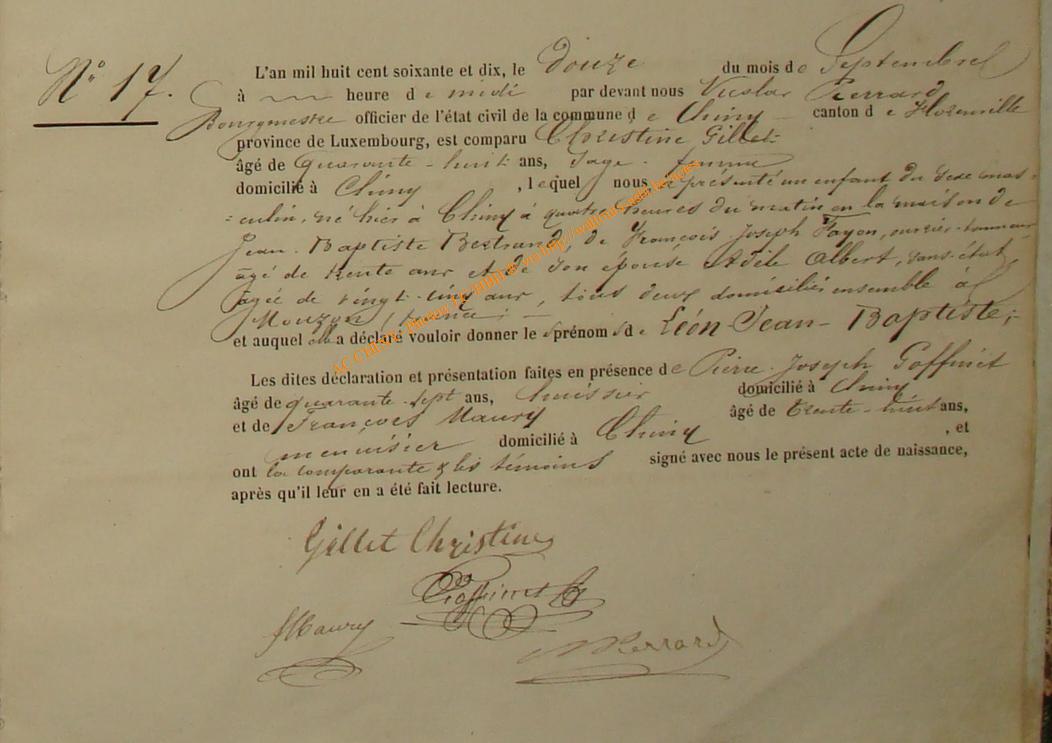 N° 17.
L'an mil huit cent soixante et dix, le douze du mois de Septembre
à heure de midi par devant nous Nicolas Perrard
Bourgmestre officier de l'état civil de la commune de Chiny canton de Florenville
province de Luxembourg, est comparu Christine Gillet
âgé de quarante-huit ans, sage-femme
domicilié à Chiny, lequel nous a présenté un enfant du sexe mas-
culin, né hier à Chiny à quatre heures du matin en la maison de
Jean-Baptiste Bertrand, de François-Joseph Fayon, ouvrier-tanneur
âgé de trente ans et de son épouse Adèle Albert, sans état,
âgée de vingt-cinq ans, tous deux domiciliés ensemble à
Mouzon, france;
et auquel elle a déclaré vouloir donner le prénom de Léon-Jean-Baptiste;
Les dites déclaration et présentation faites en présence de Pierre-Joseph Goffinet
âgé de quarante-sept ans, huissier domicilié à Chiny
et de François Maury âgé de trente-huit ans,
menuisier domicilié à Chiny, et
ont la comparante & les témoins signé avec nous le présent acte de naissance,
après qu'il leur en a été fait lecture.
Gillet Christine
Goffinet
Maury
N Perrard